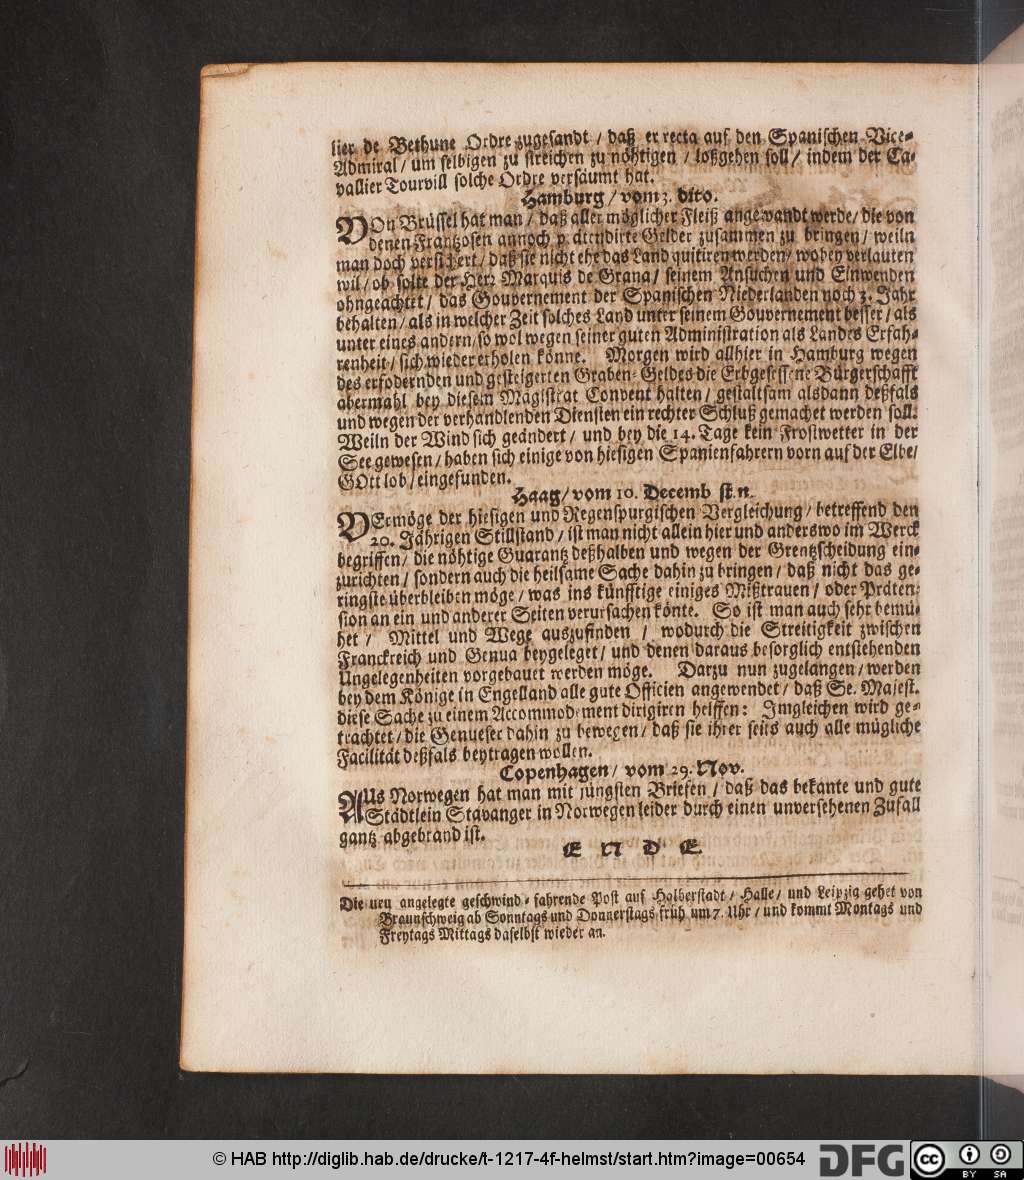 lier de Bethune Ordre zugesandt / daß er recta auf den Spanischen Vice-
Admiral / um selbigen zu streichen zu nöhtigen / loßgehen soll / indem der Ca-
vallier Tourvill solche Ordre versäumt hat.
Hamburg / vom 3. dito.
VOn Brüssel hat man / daß aller möglicher Fleiß angewandt werde / die von
denen Frantzosen annoch prætendirte Gelder zusammen zu bringen / weiln
man doch versichert / daß sie nicht ehe das Land quitiren werden / wobey verlauten
wil / ob solte der Herr Marquis de Grana / seinem Ansuchen und Einwenden
ohngeachtet / das Gouvernement der Spanischen Niederlanden noch 3. Jahr
behalten / als in welcher Zeit solches Land unter seinem Gouvernement besser / als
unter eines andern / so wol wegen seiner guten Administration als Landes Erfah-
renheit / sich wieder erholen könne. Morgen wird allhier in Hamburg wegen
des erfodernden und gesteigerten Graben-Geldes die Erbgesessene Bürgerschafft
abermahl bey diesem Magistrat Convent halten / gestaltsam alsdann deßfals
und wegen der verhandlenden Diensten ein rechter Schluß gemachet werden soll.
Weiln der Wind sich geändert / und bey die 14. Tage kein Frostwetter in der
See gewesen / haben sich einige von hiesigen Spanienfahrern vorn auf der Elbe /
GOtt lob / eingefunden.
Haag / vom 10. Decemb st. n.
VErmöge der hiesigen und Regenspurgischen Vergleichung / betreffend den
20. Jährigen Stillstand / ist man nicht allein hier und anderswo im Werck
begriffen / die nöhtige Guarantz deßhalben und wegen der Grentzscheidung ein-
zurichten / sondern auch die heilsame Sache dahin zu bringen / daß nicht das ge-
ringste überbleiben möge / was ins künfftige einiges Mißtrauen / oder Präten-
sion an ein und anderer Seiten verursachen könte. So ist man auch sehr bemü-
het / Mittel und Wege auszufinden / wodurch die Streitigkeit zwischen
Franckreich und Genua beygeleget / und denen daraus besorglich entstehenden
Ungelegenheiten vorgebauet werden möge. Darzu nun zugelangen / werden
bey dem Könige in Engelland alle gute Officien angewendet / daß Se. Majest.
diese Sache zu einem Accommodement dirigiren helffen: Imgleichen wird ge-
trachtet / die Genueser dahin zu bewegen / daß sie ihrer seits auch alle mügliche
Facilität deßfals beytragen wollen.
Copenhagen / vom 29. Nov.
AUs Norwegen hat man mit jüngsten Briefen / daß das bekante und gute
Städtlein Stavanger in Norwegen leider durch einen unversehenen Zufall
gantz abgebrand ist.
E N D E.
Die neu angelegte geschwind-fahrende Post auf Halberstadt / Halle / und Leipzig gehet von
Braunschweig ab Sonntags und Donnerstags früh um 7. Uhr / und kommt Montags und
Freytags Mittags daselbst wieder an.
© HAB http://diglib.hab.de/drucke/t-1217-4f-helmst/start.htm?image=00654
DFG
cc BY SA